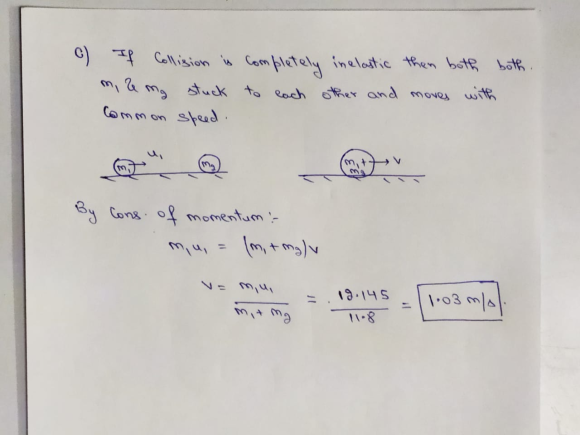 c) If Collision is Completely inelastic then both both.
m₁ & m₂ stuck to each other and moves with
Common speed.
m₁ → u₁ m₂ m₁+ m₂ → v
By Cons. of momentum :-
m₁u₁ = (m₁+m₂)v
v = m₁u₁ / m₁+m₂ = 12.145 / 11.8 = 1.03 m/s.